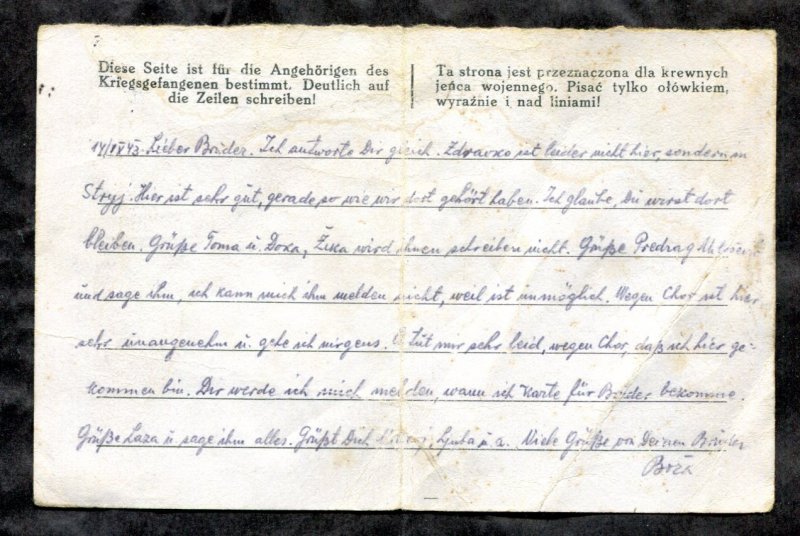 Diese Seite ist für die Angehörigen des
Kriegsgefangenen bestimmt. Deutlich auf
die Zeilen schreiben!
Ta strona jest przeznaczona dla krewnych
jeńca wojennego. Pisać tylko ołówkiem,
wyraźnie i nad liniami!
14/IV 43. Lieber Brüder. Ich antworte Dir gleich. Zdravko ist leider nicht hier, sondern in
Stryj. Hier ist sehr gut, gerade so wie wir dort gehört haben. Ich glaube, Du wirst dort
bleiben. Grüße Toma u. Doxa, Žika wird ihnen schreiben nicht. Grüße Predrag
und sage ihm, ich kann mich ihm melden nicht, weil ist unmöglich. Wegen Chor ist hier
sehr unangenehm u. gehe ich nirgens. Tut mir sehr leid, wegen Chor, daß ich hier ge-
kommen bin. Dir werde ich mich melden, wann ich Karte für Brüder bekomme.
Grüße Laza u sage ihm alles. Grüßt Dich Ljuba u. a. Viele Grüße von Deinen Brüder
Boža